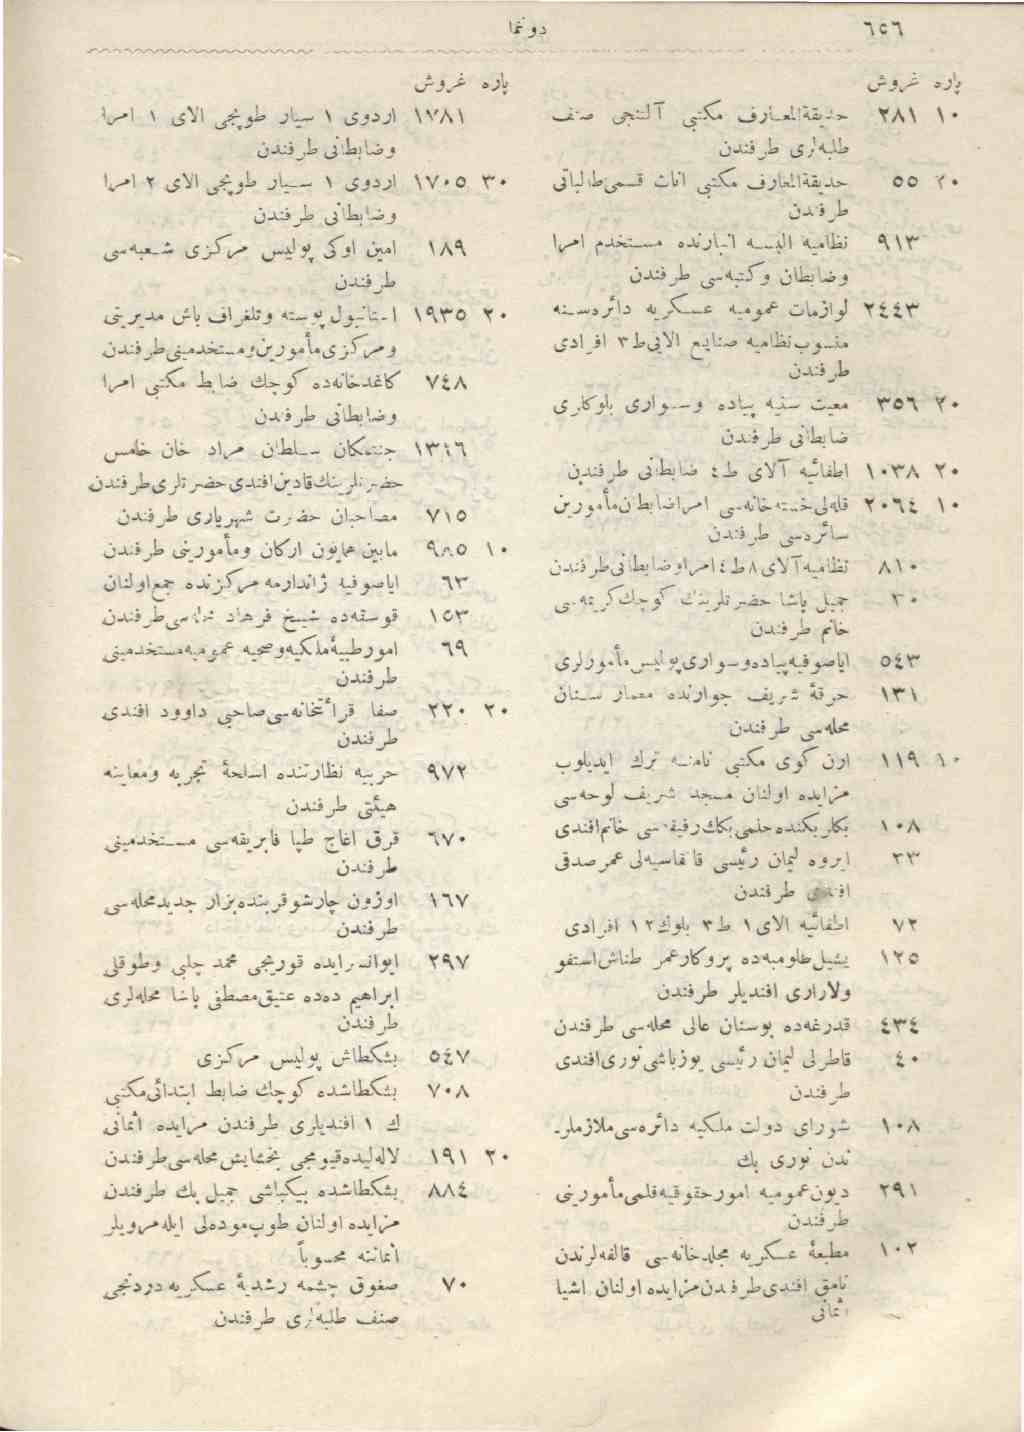 ٦٥٦
دونما
پاره غروش
١٠ ٢٨١ حديقةالمعارف مكتبى آلتنجى صنف
طلبه‌لرى طرفندن
٢٠ ٥٥ حديقةالمعارف مكتبى اناث قسمى‌طالباتى
طرفندن
٩١٣ نظاميه البسه انبارنده مستخدم امرا
وضابطان وكتبه‌سى طرفندن
٢٤٤٣ لوازمات عموميه عسكريه دائره‌سنه
منسوب‌نظاميه صنايع الايى‌ط٣ افرادى
طرفندن
٢٠ ٣٥٦ معيت سنيه پياده وسوارى بلوكلرى
ضابطانى طرفندن
٢٠ ١٠٣٨ اطفائيه آلاى ط٤ ضابطانى طرفندن
١٠ ٢٠٦٤ قله‌لى‌خسته‌خانه‌سى امراضابطان‌مأمورين
سائره‌سى طرفندن
٨١٠ نظاميه‌آلاى٨ط٤امراوضابطانى‌طرفندن
٣٠ جميل پاشا حضرتلرينك كوچك‌كريمه‌سى
خانم طرفندن
٥٤٣ اياصوفيه‌پياده‌وسوارى‌پوليس‌مأمورلرى
١٣١ خرقۀ شريف جوارنده معمار سنان
محله‌سى طرفندن
١٠ ١١٩ ارن كوى مكتبى نامنه ترك ايديلوب
مزايده اولنان مسجد شريف لوحه‌سى
١٠٨ بكلربكنده‌حلمى‌بكك‌رفيقه‌سى خانم‌افندى
٣٣ ايروه ليمان رئيسى قلفاسيه‌لى‌عمرصدقى
افندى طرفندن
٧٢ اطفائيه الاى١ ط٣ بلوك١٢ افرادى
١٢٥ يشيل‌طلومبه‌ده پروكارعمر طناش‌استفو
ولارارى افنديلر طرفندن
٤٣٤ قدرغه‌ده بوستان عالى محله‌سى طرفندن
٤٠ قاطرلى ليمان رئيسى يوزباشى‌نورى‌افندى
طرفندن
١٠٨ شوراى دولت ملكيه دائره‌سى‌ملازملر-
ندن نورى بك
٢٩١ ديون‌عموميه امورحقوقيه‌قلمى‌مأمورينى
طرفندن
١٠٢ مطبعۀ عسكريه مجلدخانه‌سى قالفه‌لرندن
نامق افندى‌طرفندن‌مزايده اولنان اشيا
اثمانى
پاره غروش
١٧٨١ اردوى ١ سيار طوپجى الاى ١ امرا
وضابطانى طرفندن
٣٠ ١٧٠٥ اردوى ١ سيار طوپجى الاى ٢ امرا
وضابطانى طرفندن
١٨٩ امين اوكى پوليس مركزى شعبه‌سى
طرفندن
٢٠ ١٩٣٥ استانبول پوسته وتلغراف باش مديريتى
ومركزى‌مأمورين‌ومستخدمينى‌طرفندن
٧٤٨ كاغدخانه‌ده كوچك ضابط مكتبى امرا
وضابطانى طرفندن
١٣٤٦ جنتمكان سلطان مراد خان خامس
حضرتلرينك‌قادين‌افندى‌حضرتلرى‌طرفندن
٧١٥ مصاحبان حضرت شهريارى طرفندن
١٠ ٩٨٥ مابين همايون اركان ومأمورينى طرفندن
٦٣ اياصوفيه ژاندارمه مركزنده جمع‌اولنان
١٥٣ قوسقه‌ده شيخ فرهاد محله‌سى‌طرفندن
٦٩ امورطبيۀ‌ملكيه‌وصحيه عموميه‌مستخدمينى
طرفندن
٢٠ ٢٢٠ صفا قرائتخانه‌سى‌صاحبى داوود افندى
طرفندن
٩٧٢ حربيه نظارتنده اسلحۀ تجربه ومعاينه
هيئتى طرفندن
٦٧٠ قرق اغاج طپا فابريقه‌سى مستخدمينى
طرفندن
١٦٧ اوزون چارشوقربنده‌بزار جديدمحله‌سى
طرفندن
٢٩٧ ايوانسرايده قوريجى محمد چلبى وطوقلى
ابراهيم دده عتيق‌مصطفى پاشا محله‌لرى
طرفندن
٥٤٧ بشكطاش پوليس مركزى
٧٠٨ بشكطاشده كوچك ضابط ابتدائى‌مكتبى
ك ١ افنديلرى طرفندن مزايده اثمانى
٢٠ ١٩١ لاله‌ليده‌قيومجى بخشايش‌محله‌سى‌طرفندن
٨٨٤ بشكطاشده بيكباشى جميل بك طرفندن
مزايده اولنان طوب‌موده‌لى ايله‌مرويلر
اثماننه محسوباً
٧٠ صغوق چشمه رشديۀ عسكريه‌دردنجى
صنف طلبه‌لرى طرفندن